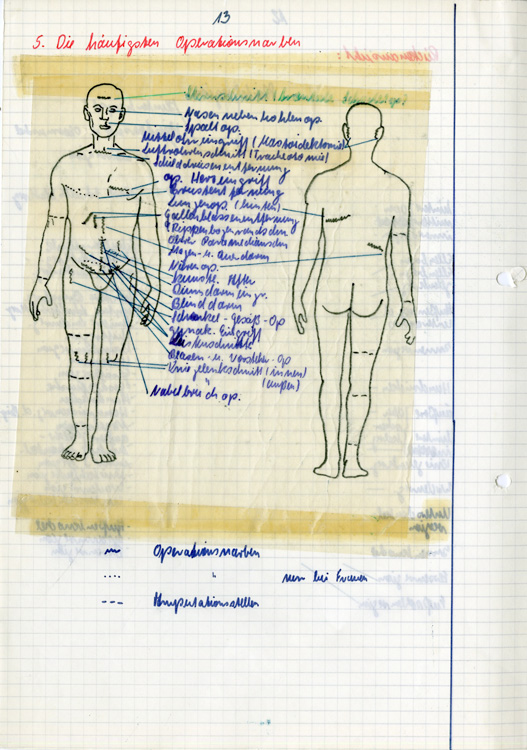 13
5. Die häufigsten Operationsnarben
Nasennebenhöhlenop.
Spaltop.
Mittelohreingriff (Mastoidektomie)
Luftröhrenschnitt (Tracheotomie)
Schilddrüsenentfernung
op. Herzeingriff
Brustentfernung
Lungenop. (hinten)
Gallenblasenentfernung
Rippenbogenrandschn.
Magen- u. Querdarm
Nierenop.
künstl. After
Dünndarmeingr.
Blinddarm
Schenkel-Gefäß-Op
gynäk. Eingriff
Leistenschnitt
Blasen- u. Vorsteh.-Op
Kniegelenkschnitt (innen)
" (außen)
Nabelbruchop.
Operationsnarben
" nur bei Frauen
--- Amputationsstellen